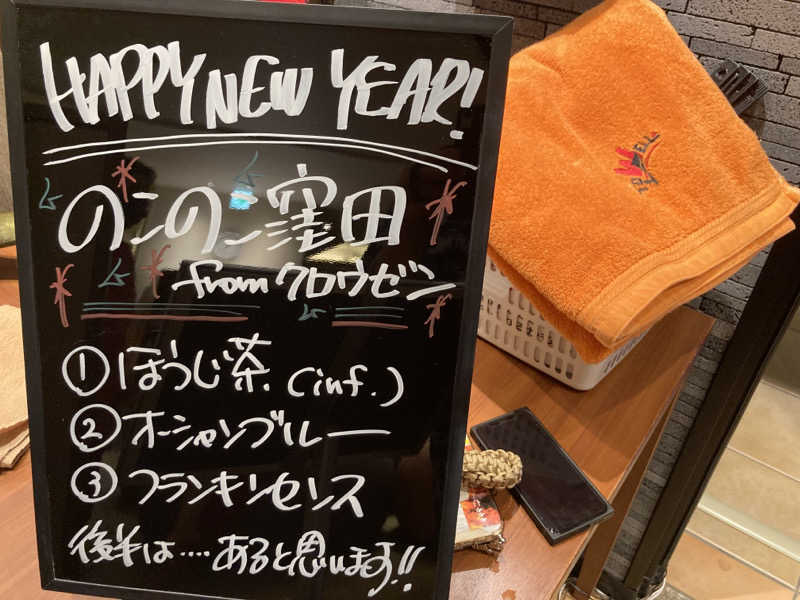 HAPPY NEW YEAR!
のこのこ窪田
from クロウゼン
① ほうじ茶 (inf.)
② オーシャンブルー
③ フランキンセンス
後半は····あると思います!!